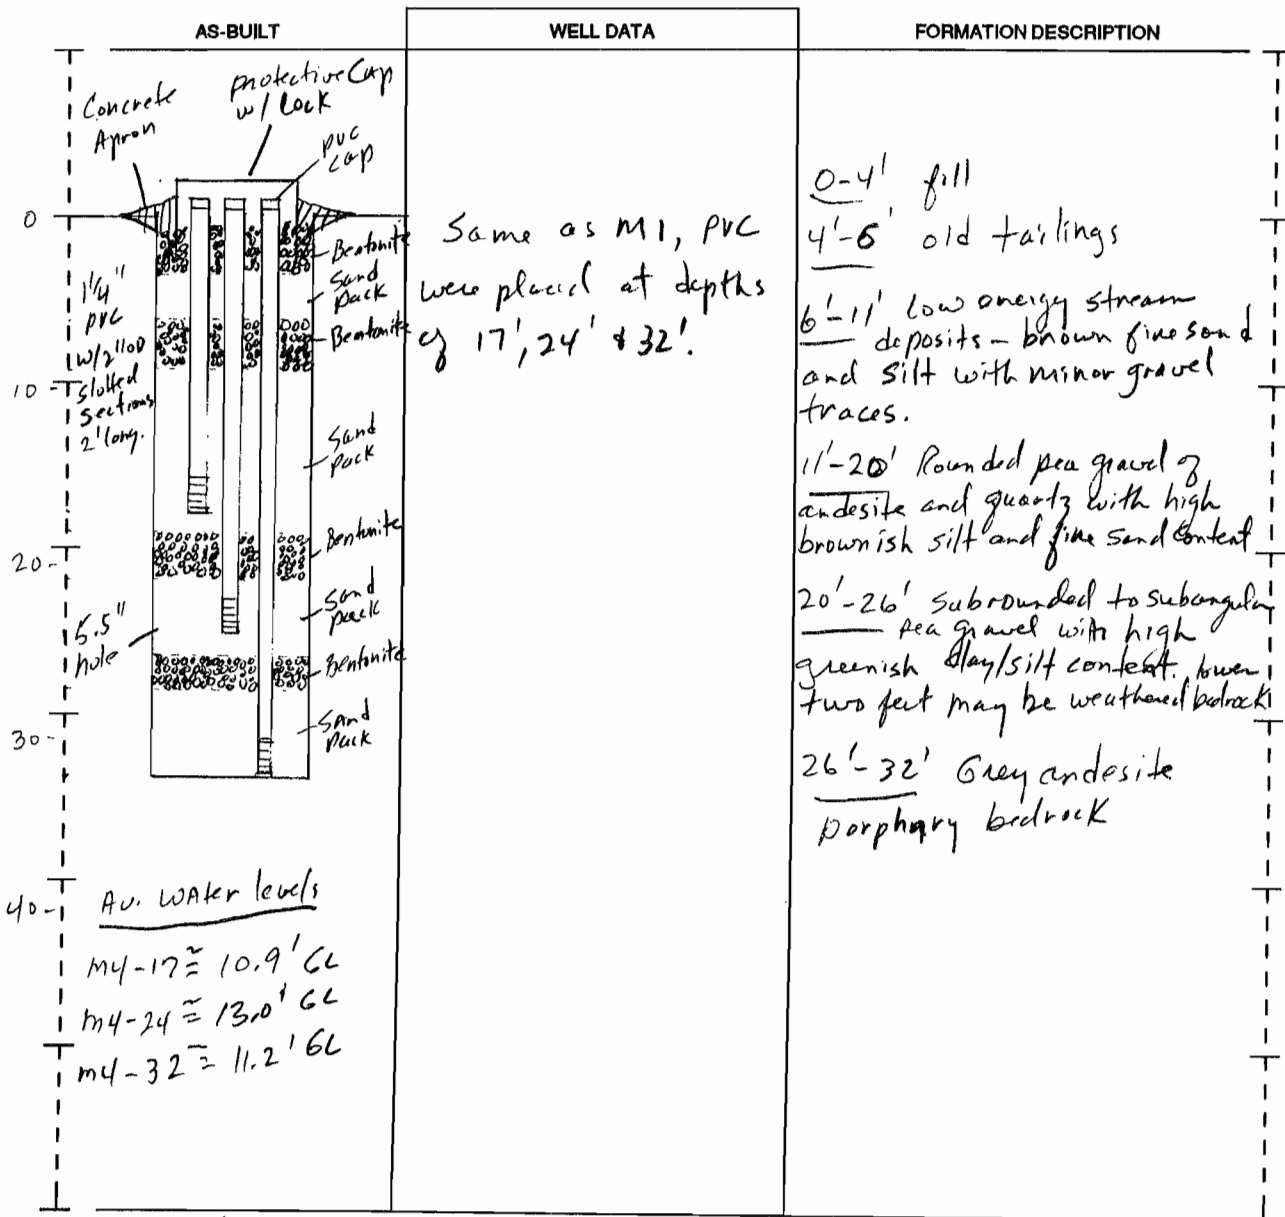 AS-BUILT
WELL DATA
FORMATION DESCRIPTION
Concrete
Apron
protective Cap
w/ Lock
PVC
cap
0
Bentonite
Sand
pack
1 1/4"
PVC
w/2" OD
slotted
sections
2' long.
Bentonite
10
Sand
pack
Bentonite
20
Sand
pack
5.5"
hole
Bentonite
Sand
pack
30
40
Av. Water levels
M4-17 ≅ 10.9' GL
M4-24 ≅ 13.0' GL
M4-32 ≅ 11.2' GL
Same as M1, PVC
were placed at depths
of 17', 24' & 32'.
0-4' fill
4'-6' old tailings
6'-11' Low energy stream
deposits - brown fine sand
and silt with minor gravel
traces.
11'-20' Rounded pea gravel of
andesite and quartz with high
brownish silt and fine sand content
20'-26' Subrounded to subangular
pea gravel with high
greenish clay/silt content. lower
two feet may be weathered bedrock
26'-32' Grey andesite
porphyry bedrock